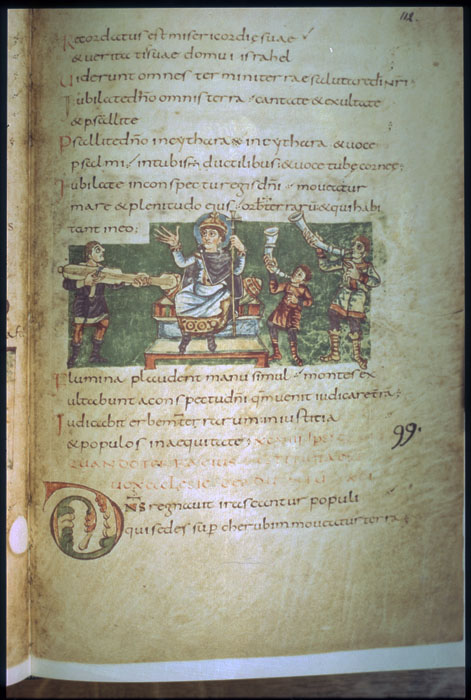 112.
Recordatus est misericordie suae
& veritatis suae domui israhel
Viderunt omnes termini terrae salutare di nri
Iubilate dno omnis terra cantate & exultate
& psallite
Psallite dno in cythara & in cythara & uoce
psalmi in tubis ductilibus & uoce tube corneę
Iubilate in conspectu regis dni moueatur
mare & plenitudo eius orbis terraru & qui habi
tant in eo;
Flumina plaudent manu simul montes ex
ultabunt a conspectu dni qm uenit iudicare terra;
Iudicabit orbem terrarum in iustitia
& populos in aequitate;
99.
DNS regnauit irascantur populi
qui sedes sup cherubim moueatur terra;